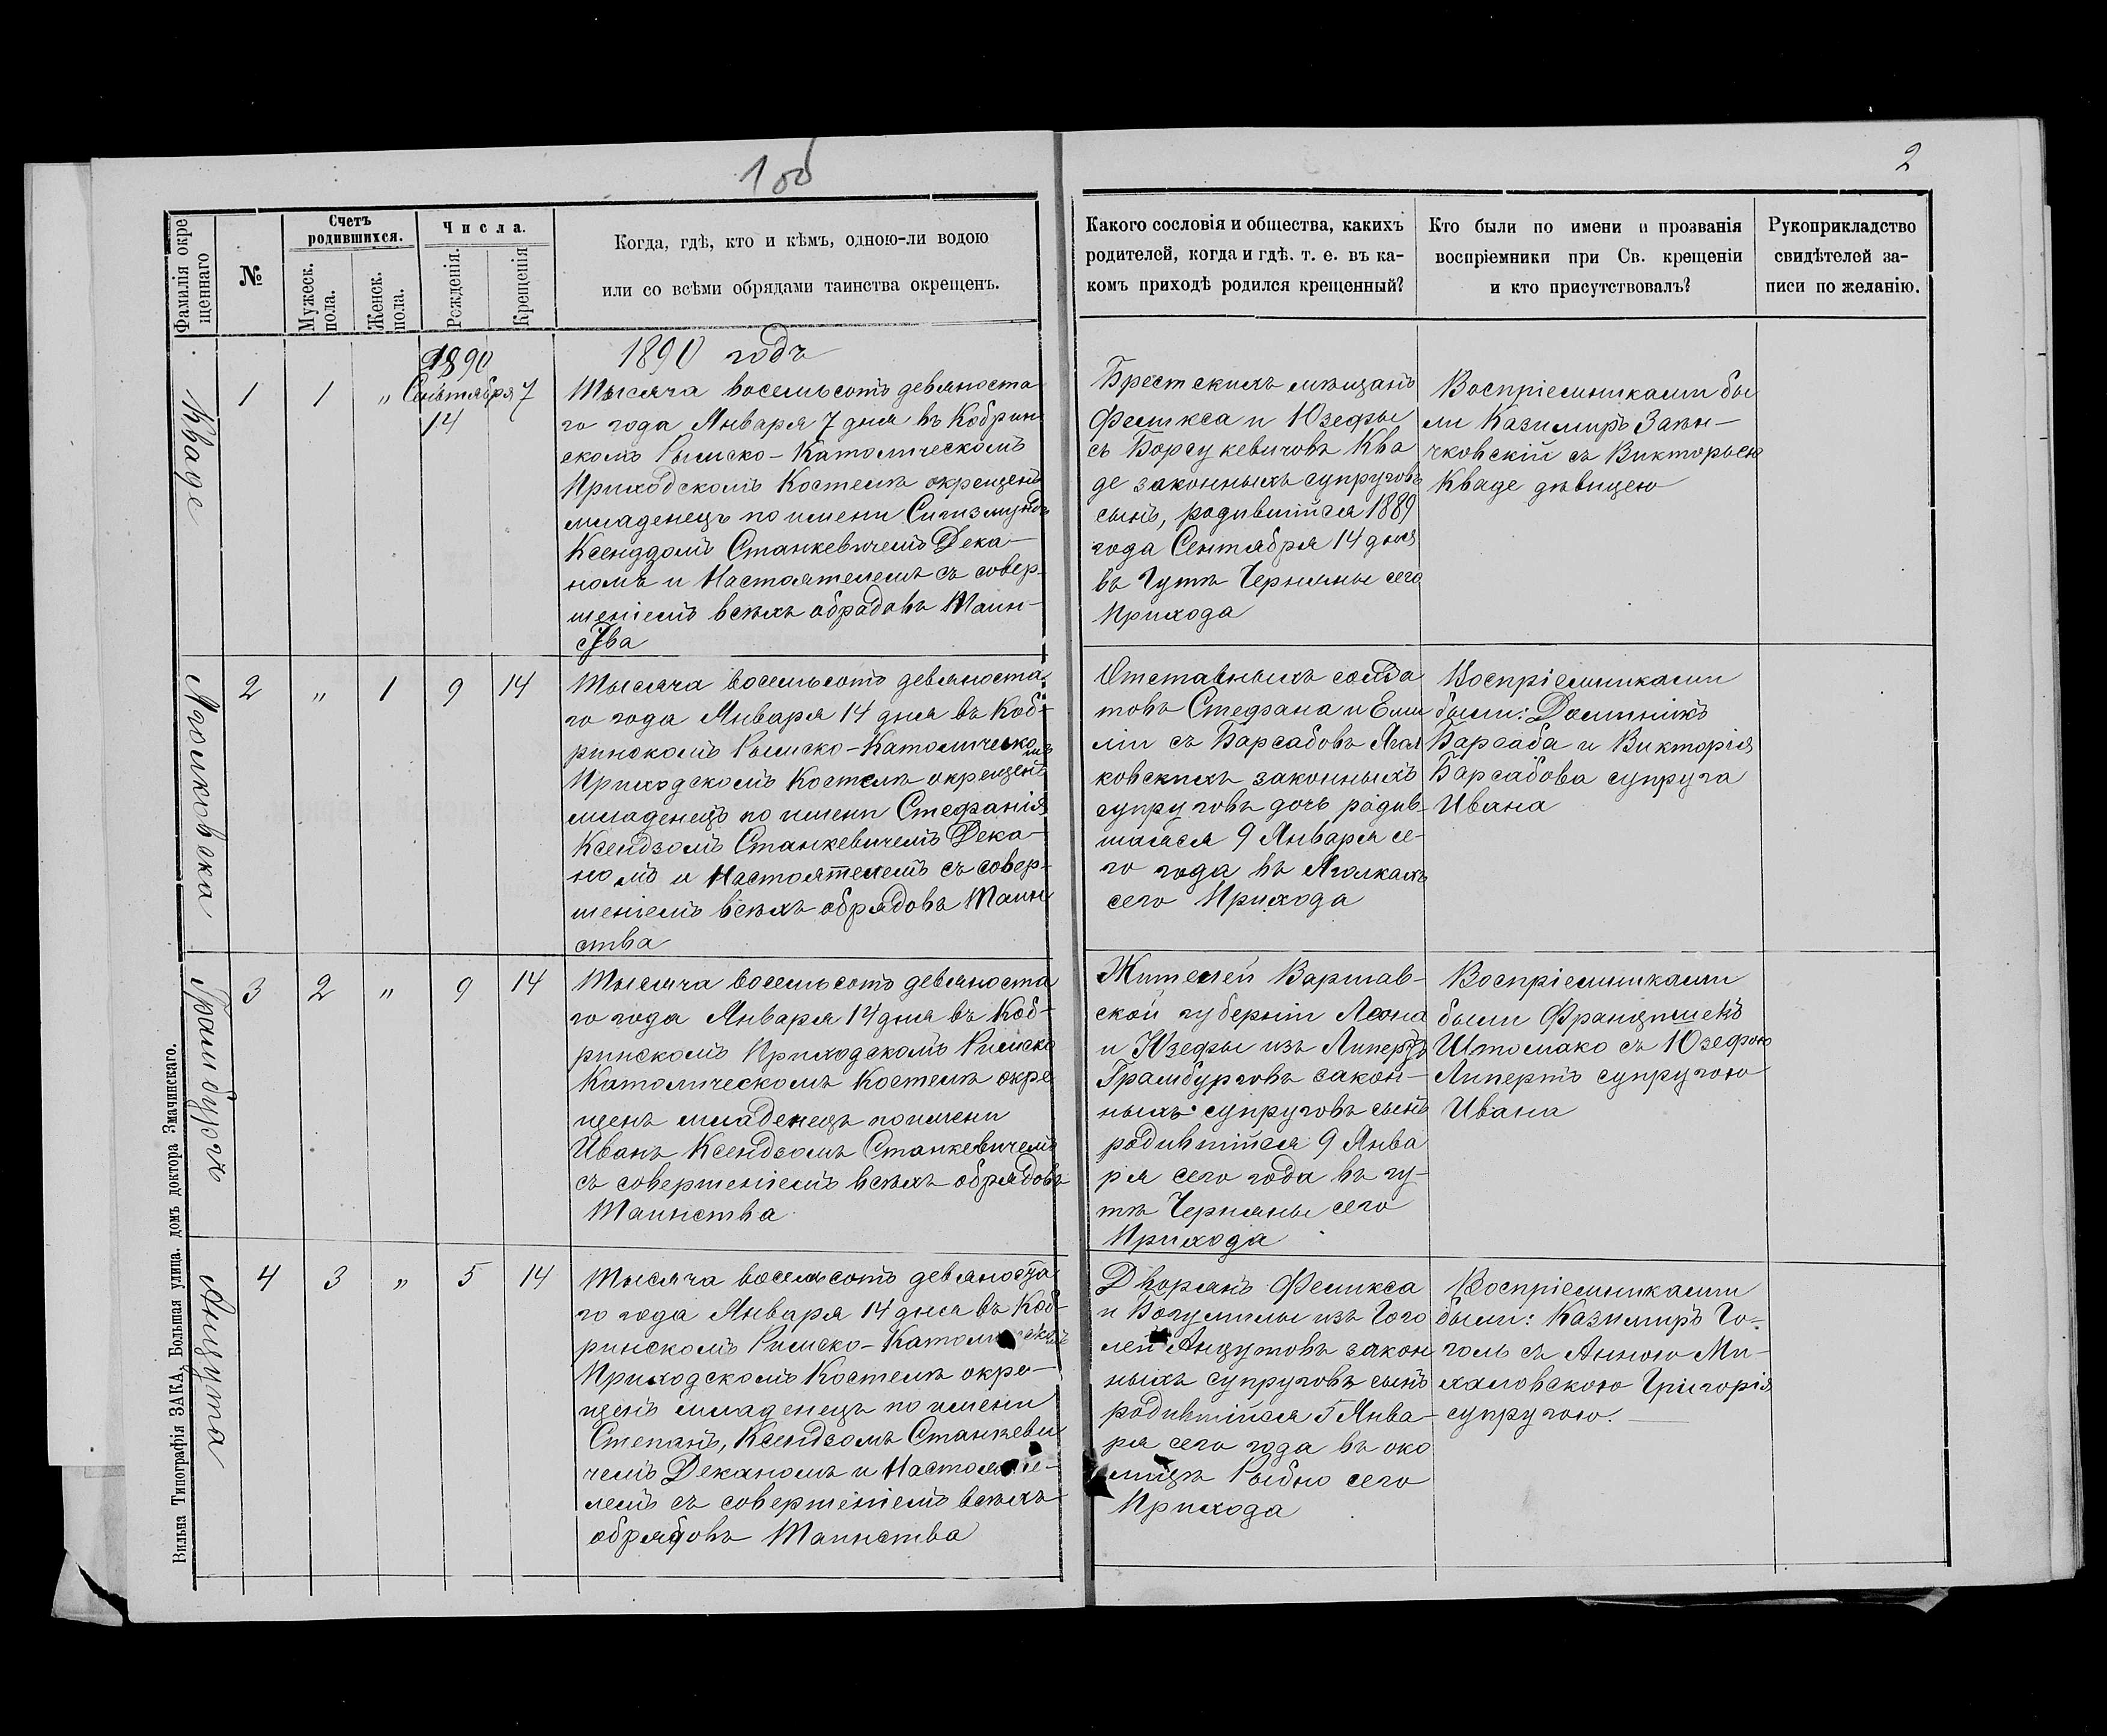 100
2
Фамилія окре
щеннаго
№
Счетъ
родившихся.
Мужеск.
пола.
Женск.
пола.
Числа.
Рожденія.
Крещенія
Когда, гдѣ, кто и кѣмъ, одною-ли водою
или со всѣми обрядами таинства окрещенъ.
Какого сословія и общества, какихъ
родителей, когда и гдѣ. т. е. въ ка-
комъ приходѣ родился крещенный?
Кто были по имени и прозванія
воспріемники при Св. крещеніи
и кто присутствовалъ?
Рукоприкладство
свидѣтелей за-
писи по желанію.
1890
1890 годъ
Кваде
1 1 „ Сентября 7
14
Тысяча восемьсотъ девяноста
го года Января 7 дня въ Кобрин
скомъ Рымско-Католическомъ
Приходскомъ Костелѣ окрещенъ
младенецъ по имени Сигизмундъ
Ксендзомъ Станкевичемъ Дека-
номъ и Настоятелемъ съ совер-
шеніемъ всѣхъ обрядовъ Таин-
ства
Брестскихъ мѣщанъ
Феликса и Юзефы
съ Борсукевичовъ Ква
де законныхъ супруговъ
сынъ, родившійся 1889
года Сентября 14 дня
въ Гутѣ Черняны сего
Прихода
Воспріемниками бы
ли Казимиръ
чковскій съ Викторьею
Кваде дѣвицею
Ягалковска
2 „ 1 9 14
Тысяча восемьсотъ девяноста
го года Января 14 дня въ Коб-
ринскомъ Рымско-Католическомъ
Приходскомъ Костелѣ окрещенъ
младенецъ по имени Стефанія
Ксендзомъ Станкевичемъ Дека-
номъ и Настоятелемъ съ совер-
шеніемъ всѣхъ обрядовъ Таин
ства
Отставныхъ солда
товъ Стефана и Еми
ліи съ Барсабовъ Ягал
ковскихъ законныхъ
супруговъ дочь родив-
шаяся 9 Января се-
го года въ Ягалкахъ
сего Прихода
Воспріемниками
были: Доминикъ
Барсаба и Викторія
Барсабова супруга
Ивана
Грамбургъ
3 2 „ 9 14
Тысяча восемьсотъ девяноста
го года Января 14 дня въ Коб-
ринскомъ Приходскомъ Римско
Католическомъ Костелѣ окре
щенъ младенецъ по имени
Иванъ Ксендзомъ Станкевичемъ
съ совершеніемъ всѣхъ обрядовъ
Таинства
Жителей Варшав-
ской губерніи Леона
и Юзефы изъ Липертъ
Грамбурговъ закон-
ныхъ супруговъ сынъ
родившійся 9 Янва
ря сего года въ гу-
тѣ Черняны сего
Прихода
Воспріемниками
были Францишекъ
Штомако съ Юзефою
Липертъ супругою
Ивана
Анцута
4 3 „ 5 14
Тысяча восемьсотъ девяноста
го года Января 14 дня въ Коб-
ринскомъ Римско-Католическомъ
Приходскомъ Костелѣ окре-
щенъ младенецъ по имени
Степанъ, Ксендзомъ Станкеви
чемъ Деканомъ и Настояте-
лемъ съ совершеніемъ всѣхъ
обрядовъ Таинства
Дворянъ Феликса
и Богумилы изъ Гого
лей Анцутовъ закон
ныхъ супруговъ сынъ
родившійся 5 Янва-
ря сего года въ око
лицѣ Рыбно сего
Прихода
Воспріемниками
были: Казимиръ Го-
голь съ Анною Ми-
халовскою Григорія
супругою.
Вильна Типографія ЗАКА, Большая улица. домъ доктора Змачинскаго.